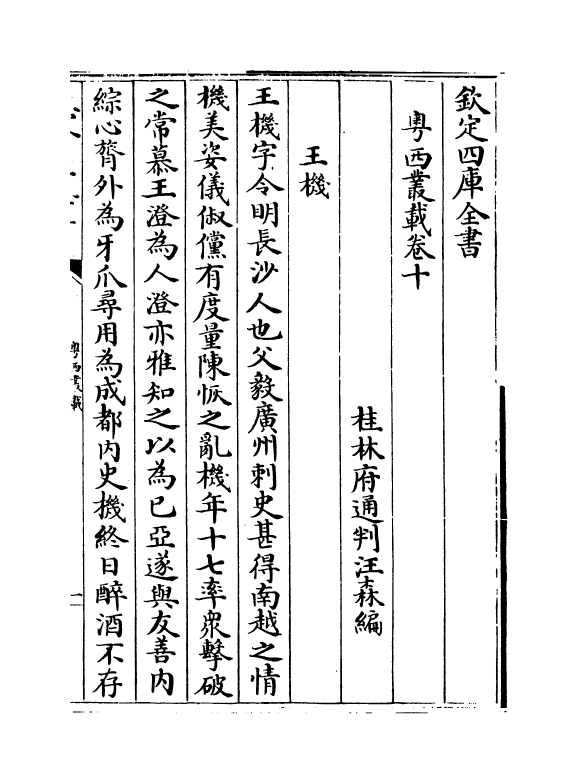 欽定四庫全書
粵西叢載卷十
桂林府通判汪森編
王機
王機字令明長沙人也父毅廣州刺史甚得南越之情
機美姿儀俶儻有度量陳恢之亂機年十七率衆擊破
之常慕王澄為人澄亦雅知之以為已亞遂與友善內
綜心膂外為牙爪尋用為成都內史機終日醉酒不存
粵西叢載
一